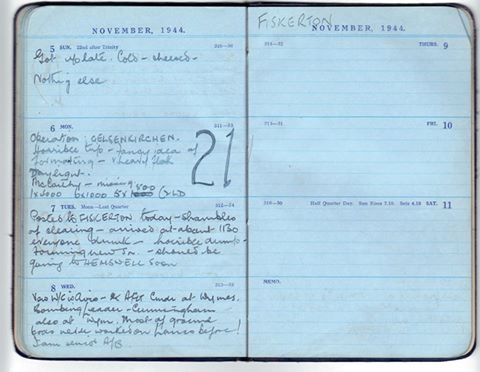 NOVEMBER, 1944.
5 SUN. 22nd after Trinity 310—56
Got up late. Cold –
Nothing else
6 MON. 311—55
Operation: GELSENKIRCHEN.
Horrible trip – fancy idea of
formating – heavy flak
Daylight.
McCarthy – missing
1x4000 6x1000 5x500 GLD
21
7 TUES. Moon—Last Quarter
Posted to FISKERTON today – shambles
of clearing – arrived at about 1130
everyone drunk – horrible dump –
forming new Sn. – should be
going to HEMSWELL soon
8 WED. 313—53
New W/C is – ex Cmdr at Wymes.
Bombing Leader – Cunningham
also at Wym. Most of ground
before!
I am senior A/B
FISKERTON
NOVEMBER, 1944.
314—52 THURS. 9
315—51 FRI. 10
316—50 Half Quarter Day. Sun Rises 7.10. Sets 4.18 SAT. 11
MEMO.